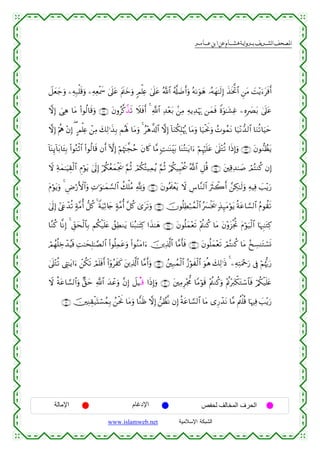 المصحف الشريف برواية هشام عن ابن عامر
أَفَرَءَيۡتَ مَنِ ٱتَّخَذَ إِلَٰهَهُۥ هَوَىٰهُ وَأَضَلَّهُ ٱللَّهُ عَلَىٰ عِلۡمٖ وَخَتَمَ عَلَىٰ سَمۡعِهِۦ وَقَلۡبِهِۦ وَجَعَلَ
عَلَىٰ بَصَرِهِۦ غِشَٰوَةٗ فَمَن يَهۡدِيهِ مِنۢ بَعۡدِ ٱللَّهِ أَفَلَا تَذَّكَّرُونَ وَقَالُواْ مَا هِيَ إِلَّا
حَيَاتُنَا ٱلدُّنۡيَا نَمُوتُ وَنَحۡيَا وَمَا يُهۡلِكُنَآ إِلَّا ٱلدَّهۡرُ وَمَا لَهُم بِذَٰلِكَ مِنۡ عِلۡمٍ إِنۡ هُمۡ إِلَّا
يَظُنُّونَ وَإِذَا تُتۡلَىٰ عَلَيۡهِمۡ ءَايَٰتُنَا بَيِّنَٰتٖ مَّا كَانَ حُجَّتَهُمۡ إِلَّآ أَن قَالُواْ ٱئۡتُواْ بِـَٔابَآئِنَآ
إِن كُنتُمۡ صَٰدِقِينَ قُلِ ٱللَّهُ يُحۡيِيكُمۡ ثُمَّ يُمِيتُكُمۡ ثُمَّ يَجۡمَعُكُمۡ إِلَىٰ يَوۡمِ ٱلۡقِيَٰمَةِ لَا
رَيۡبَ فِيهِ وَلَٰكِنَّ أَكۡثَرَ ٱلنَّاسِ لَا يَعۡلَمُونَ وَلِلَّهِ مُلۡكُ ٱلسَّمَٰوَٰتِ وَٱلۡأَرۡضِ وَيَوۡمَ
تَقُومُ ٱلسَّاعَةُ يَوۡمَئِذٖ يَخۡسَرُ ٱلۡمُبۡطِلُونَ وَتَرَىٰ كُلَّ أُمَّةٖ جَاثِيَةٗ كُلُّ أُمَّةٖ تُدۡعَىٰٓ إِلَىٰ
كِتَٰبِهَا ٱلۡيَوۡمَ تُجۡزَوۡنَ مَا كُنتُمۡ تَعۡمَلُونَ هَٰذَا كِتَٰبُنَا يَنطِقُ عَلَيۡكُم بِٱلۡحَقِّ إِنَّا كُنَّا
نَسۡتَنسِخُ مَا كُنتُمۡ تَعۡمَلُونَ فَأَمَّا ٱلَّذِينَ ءَامَنُواْ وَعَمِلُواْ ٱلصَّٰلِحَٰتِ فَيُدۡخِلُهُمۡ
رَبُّهُمۡ فِي رَحۡمَتِهِۦ ذَٰلِكَ هُوَ ٱلۡفَوۡزُ ٱلۡمُبِينُ وَأَمَّا ٱلَّذِينَ كَفَرُوٓاْ أَفَلَمۡ تَكُنۡ ءَايَٰتِي تُتۡلَىٰ
عَلَيۡكُمۡ فَٱسۡتَكۡبَرۡتُمۡ وَكُنتُمۡ قَوۡمٗا مُّجۡرِمِينَ وَإِذَا قِيلَ إِنَّ وَعۡدَ ٱللَّهِ حَقّٞ وَٱلسَّاعَةُ لَا
رَيۡبَ فِيهَا قُلۡتُم مَّا نَدۡرِي مَا ٱلسَّاعَةُ إِن نَّظُنُّ إِلَّا ظَنّٗا وَمَا نَحۡنُ بِمُسۡتَيۡقِنِينَ
الحرف المخالف لحفص الإدغام الإمالة
www.islamweb.net الشبكة الإسلامية